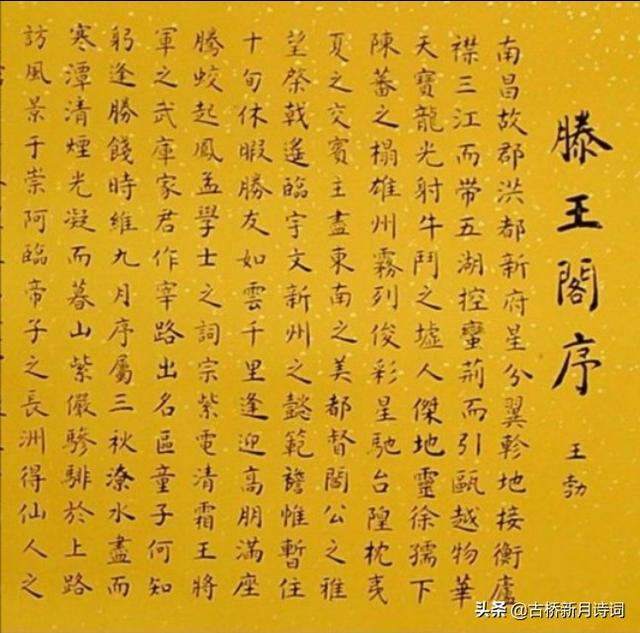 滕王閣序
王勃
南昌故郡洪都新府星分翼軫地接衡廬
襟三江而帶五湖控蠻荊而引甌越物華
天寶龍光射牛鬥之墟人傑地靈徐孺下
陳蕃之榻雄州霧列俊彩星馳台隍枕夷
夏之交賓主盡東南之美都督閻公之雅
望棨戟遙臨宇文新州之懿範襜帷暫住
十旬休暇勝友如雲千里逢迎高朋滿座
騰蛟起鳳孟學士之詞宗紫電清霜王將
軍之武庫家君作宰路出名區童子何知
躬逢勝餞時維九月序屬三秋潦水盡而
寒潭清煙光凝而暮山紫儼驂騑於上路
訪風景于崇阿臨帝子之長洲得仙人之
头条 @古桥新月诗词